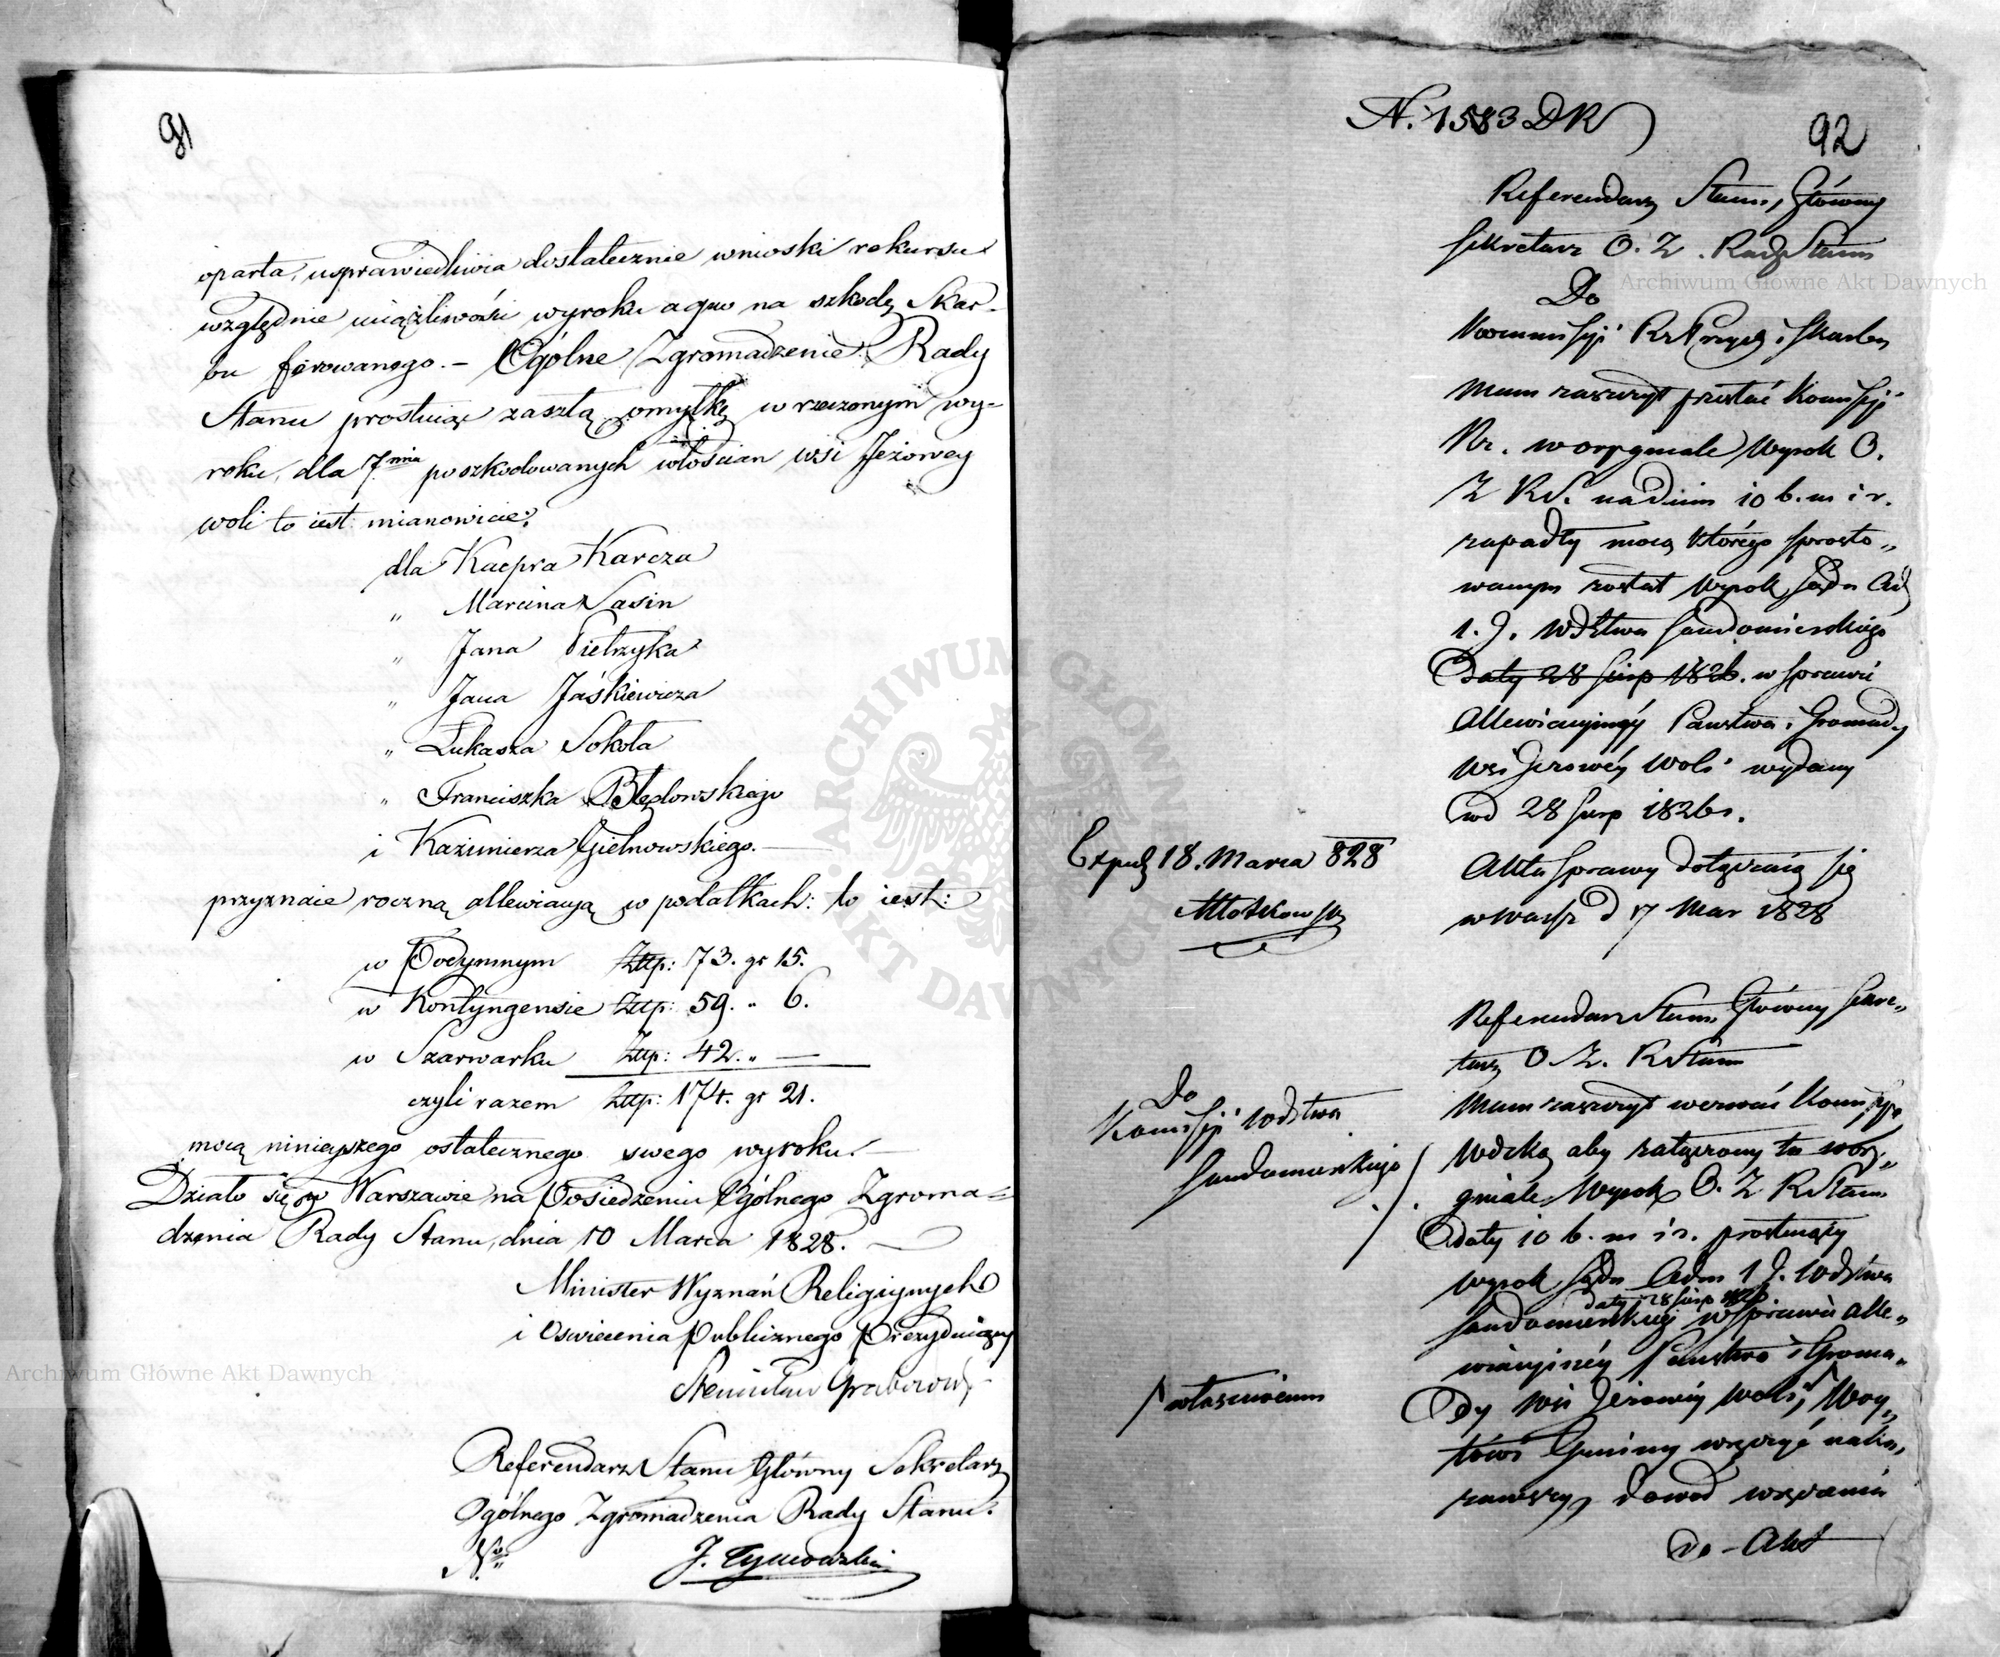 91
oparta, usprawiedliwia dostatecznie wnioski rekursu
względnie uciążliwości wyroku a quo na szkodę Skar-
bu ferowanego. – Ogólne Zgromadzenie Rady
Stanu prostuiąc zaszłą omyłkę w rzeczonym wy-
roku, dla 7miu poszkodowanych włościan wsi Jeżowey
woli to iest: mianowicie:
dla Kacpra Karcza
„ Marcina Sasin
„ Jana Pietrzyka
„ Jana Jaśkiewicza
„ Łukasza Sokoła
„ Franciszka Błędowskiego
i Kaźimierza Gielnowskiego. —
przyznaie roczną allewiacyą w podatkach: to iest:
w Podymnym Złtp: 73. gr 15.
w Kontyngensie Złtp: 59. „ 6.
w Szarwarku Złtp: 42. „ —
czyli razem Złtp: 174. gr 21.
mocą ninieyszego ostatecznego swego wyroku. —
Działo się w Warszawie na Posiedzeniu Ogólnego Zgroma-
dzenia Rady Stanu, dnia 10 Marca 1828. —
Minister Wyznań Religiynych
i Oswiecenia Publicznego Prezyduiący
Stanisław Grabowski
Referendarz Stanu Główny Sekretarz
Ogólnego Zgromadzenia Rady Stanu.
J. Tymowski
N. 1583 DR
92
Referendarz Stanu, Główny
Sekretarz O. Z. Rady Stanu
Do
Kommissyi Rz Przych i Skarbu
Mam zaszczyt przesłać Kommissyi
Rz. w oryginale Wyrok O.
Z RS. na dniu 10 b. m i r.
zapadły mocą którego sprosto„
wanym został Wyrok Sądu Ad
1. J. Wdztwa Sandomierskiego
daty 28 Sierp 1826. w sprawie
Allewiacyinéy Państwa i Gromady
Wsi Jeżowéy Woli wydany
od 28 Sierp 1826 r.
Akta sprawy dołączaią się
w Warsz d 17 Mar 1828
Exped 18. Marca 828
Młotkowski
Referendarz Stanu Główny Sekre„
tarz O Z. R Stanu
Do
Komissyi Wdztwa
Sandomierskiego
Mam zaszczyt wezwać Komissyą
Wdzką aby załączony tu w ory„
ginale Wyrok O. Z R Stanu
daty 10 b. m i r. prostuiący
wyrok Sądu Adm 1 J. Wdztwa
daty 28 Sierp 1826.
Sandomierskiego w sprawie Alle„
wiacyinéy Państwa i Groma„
dy Wsi Jeżowéy Woli, Woy„
/ właściwemu
towi Gminy wręczyć nakazawszy, dowód wręczenia
do Akt
Archiwum Główne Akt Dawnych
Archiwum Główne Akt Dawnych
ARCHIWUM GŁÓWNE AKT DAWNYCH